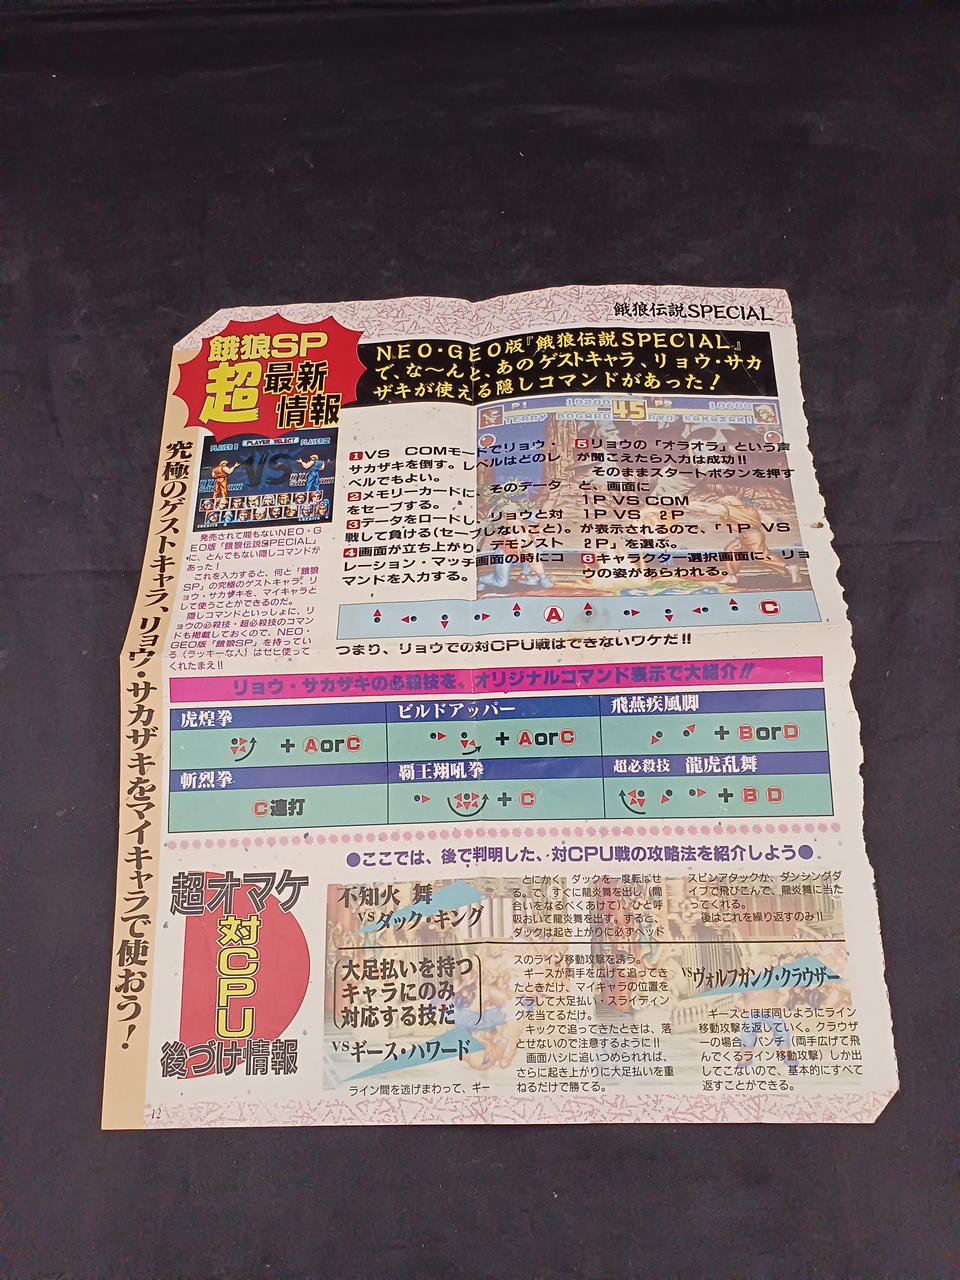 餓狼伝説SPECIAL
餓狼SP
超最新
情報
NEO・GEO版『餓狼伝説SPECIAL』
で、な〜んと、あのゲストキャラ、リョウ・サカ
ザキが使える隠しコマンドがあった!
究極のゲストキャラ、リョウ・サカザキをマイキャラで使おう!
PLAYER 1 PLAYER SELECT PLAYER 2
VS
発売されて間もないNEO・G
EO版「餓狼伝説SPECIAL」
に、とんでもない隠しコマンドが
あった!
これを入力すると、何と「餓狼
SP」の究極のゲストキャラ、リ
ョウ・サカザキを、マイキャラと
して使うことができるのだ。
隠しコマンドといっしょに、リ
ョウの必殺技・超必殺技のコマン
ドも掲載しておくので、NEO・
GEO版「餓狼SP」を持ってい
る(ラッキーな人)はぜひ使って
くれたまえ!!
P1 10200 45 P2 10600
TERRY BOGARD RYO SAKAZAKI
1VS COMモードでリョウ・
サカザキを倒す。レベルはどのレ
ベルでもよい。
2メモリーカードに、そのデータ
をセーブする。
3データをロードし、リョウと対
戦して負ける(セーブしないこと)。
4画面が立ち上がり、デモンスト
レーション・マッチ画面の時にコ
マンドを入力する。
5リョウの「オラオラ」という声
が聞こえたら入力は成功!!
そのままスタートボタンを押す
と、画面に
1P VS COM
1P VS 2P
が表示されるので、「1P VS
2P」を選ぶ。
6キャラクター選択画面に、リョ
ウの姿があらわれる。
A C
つまり、リョウでの対CPU戦はできないワケだ!!
リョウ・サカザキの必殺技を、オリジナルコマンド表示で大紹介!!
虎煌拳 ビルドアッパー 飛燕疾風脚
+ AorC + AorC + BorD
斬烈拳 覇王翔吼拳 超必殺技 龍虎乱舞
C連打 + C + B D
●ここでは、後で判明した、対CPU戦の攻略法を紹介しよう●
超オマケ
対CPU
後づけ情報
不知火 舞
VSダック・キング
とにかく、ダックを一度転ばせ
る。で、すぐに龍炎舞を出し(間
合いをなるべくあけて)、ひと呼
吸おいて龍炎舞を出す。すると、
ダックは起き上がりに必ずヘッド
スピンアタックか、ダンシングダ
イブで飛びこんで、龍炎舞に当た
ってくれる。
後はこれを繰り返すのみ!!
大足払いを持つ
キャラにのみ
対応する技だ
VSギース・ハワード
ライン間を逃げまわって、ギー
スのライン移動攻撃を誘う。
ギースが両手を広げて追ってき
たときだけ、マイキャラの位置を
ズラして大足払い・スライディン
グを当てるだけ。
キックで追ってきたときは、落
とせないので注意するように!!
画面ハシに追いつめられれば、
さらに起き上がりに大足払いを重
ねるだけで勝てる。
VSヴォルフガング・クラウザー
ギースとほぼ同じようにライン
移動攻撃を返していく。クラウザ
ーの場合、パンチ(両手広げて飛
んでくるライン移動攻撃)しか出
してこないので、基本的にすべて
返すことができる。
12